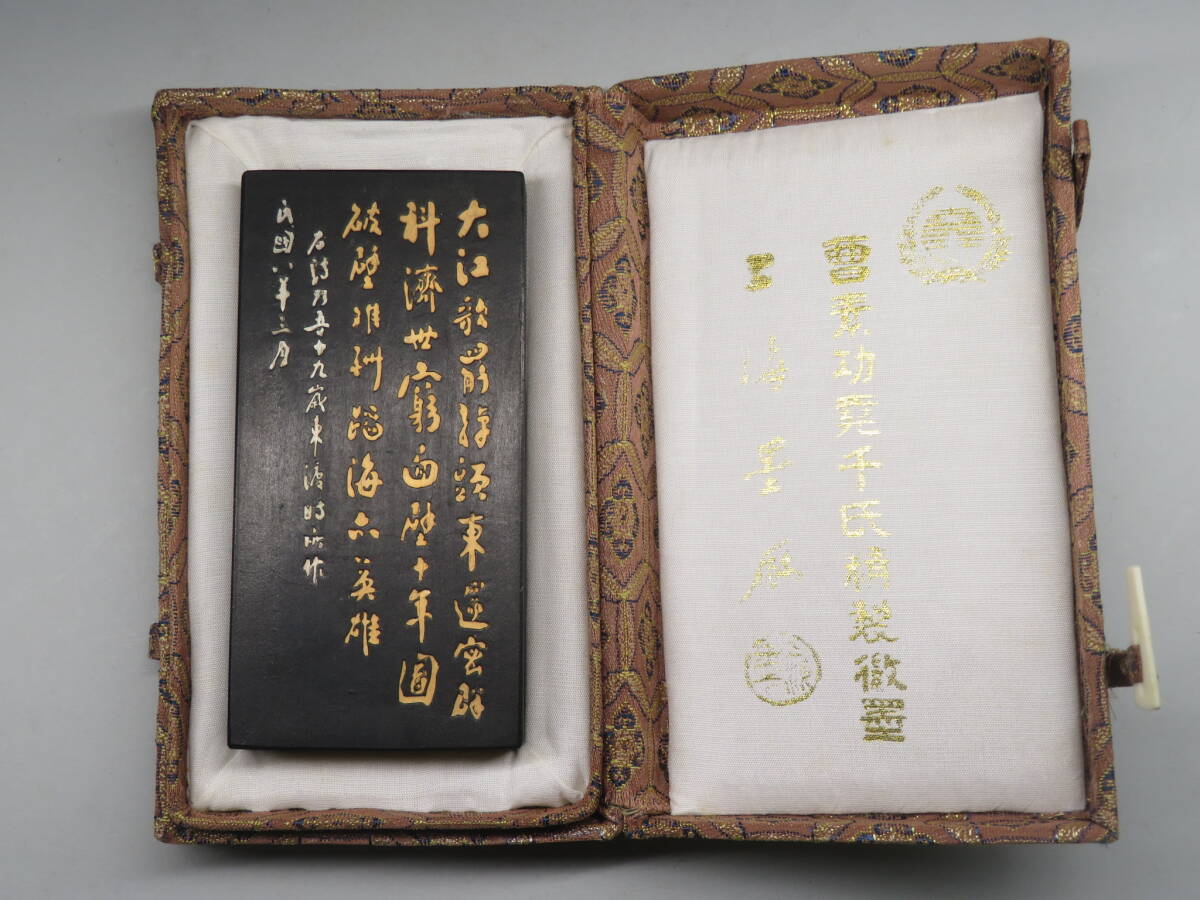 大江歌罷掉頭東邃密群
科濟世窮面壁十年圖
破壁難酬蹈海亦英雄
右詩乃吾十九歲東渡時所作
民國八年三月
曹素功堯千氏精製徽墨
上海墨厰